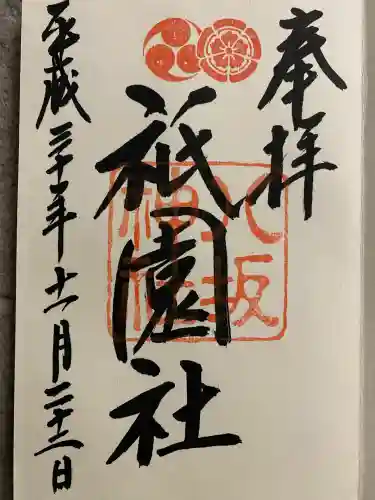 奉拝
八坂神社
祇園社
平成三十年十一月二十三日